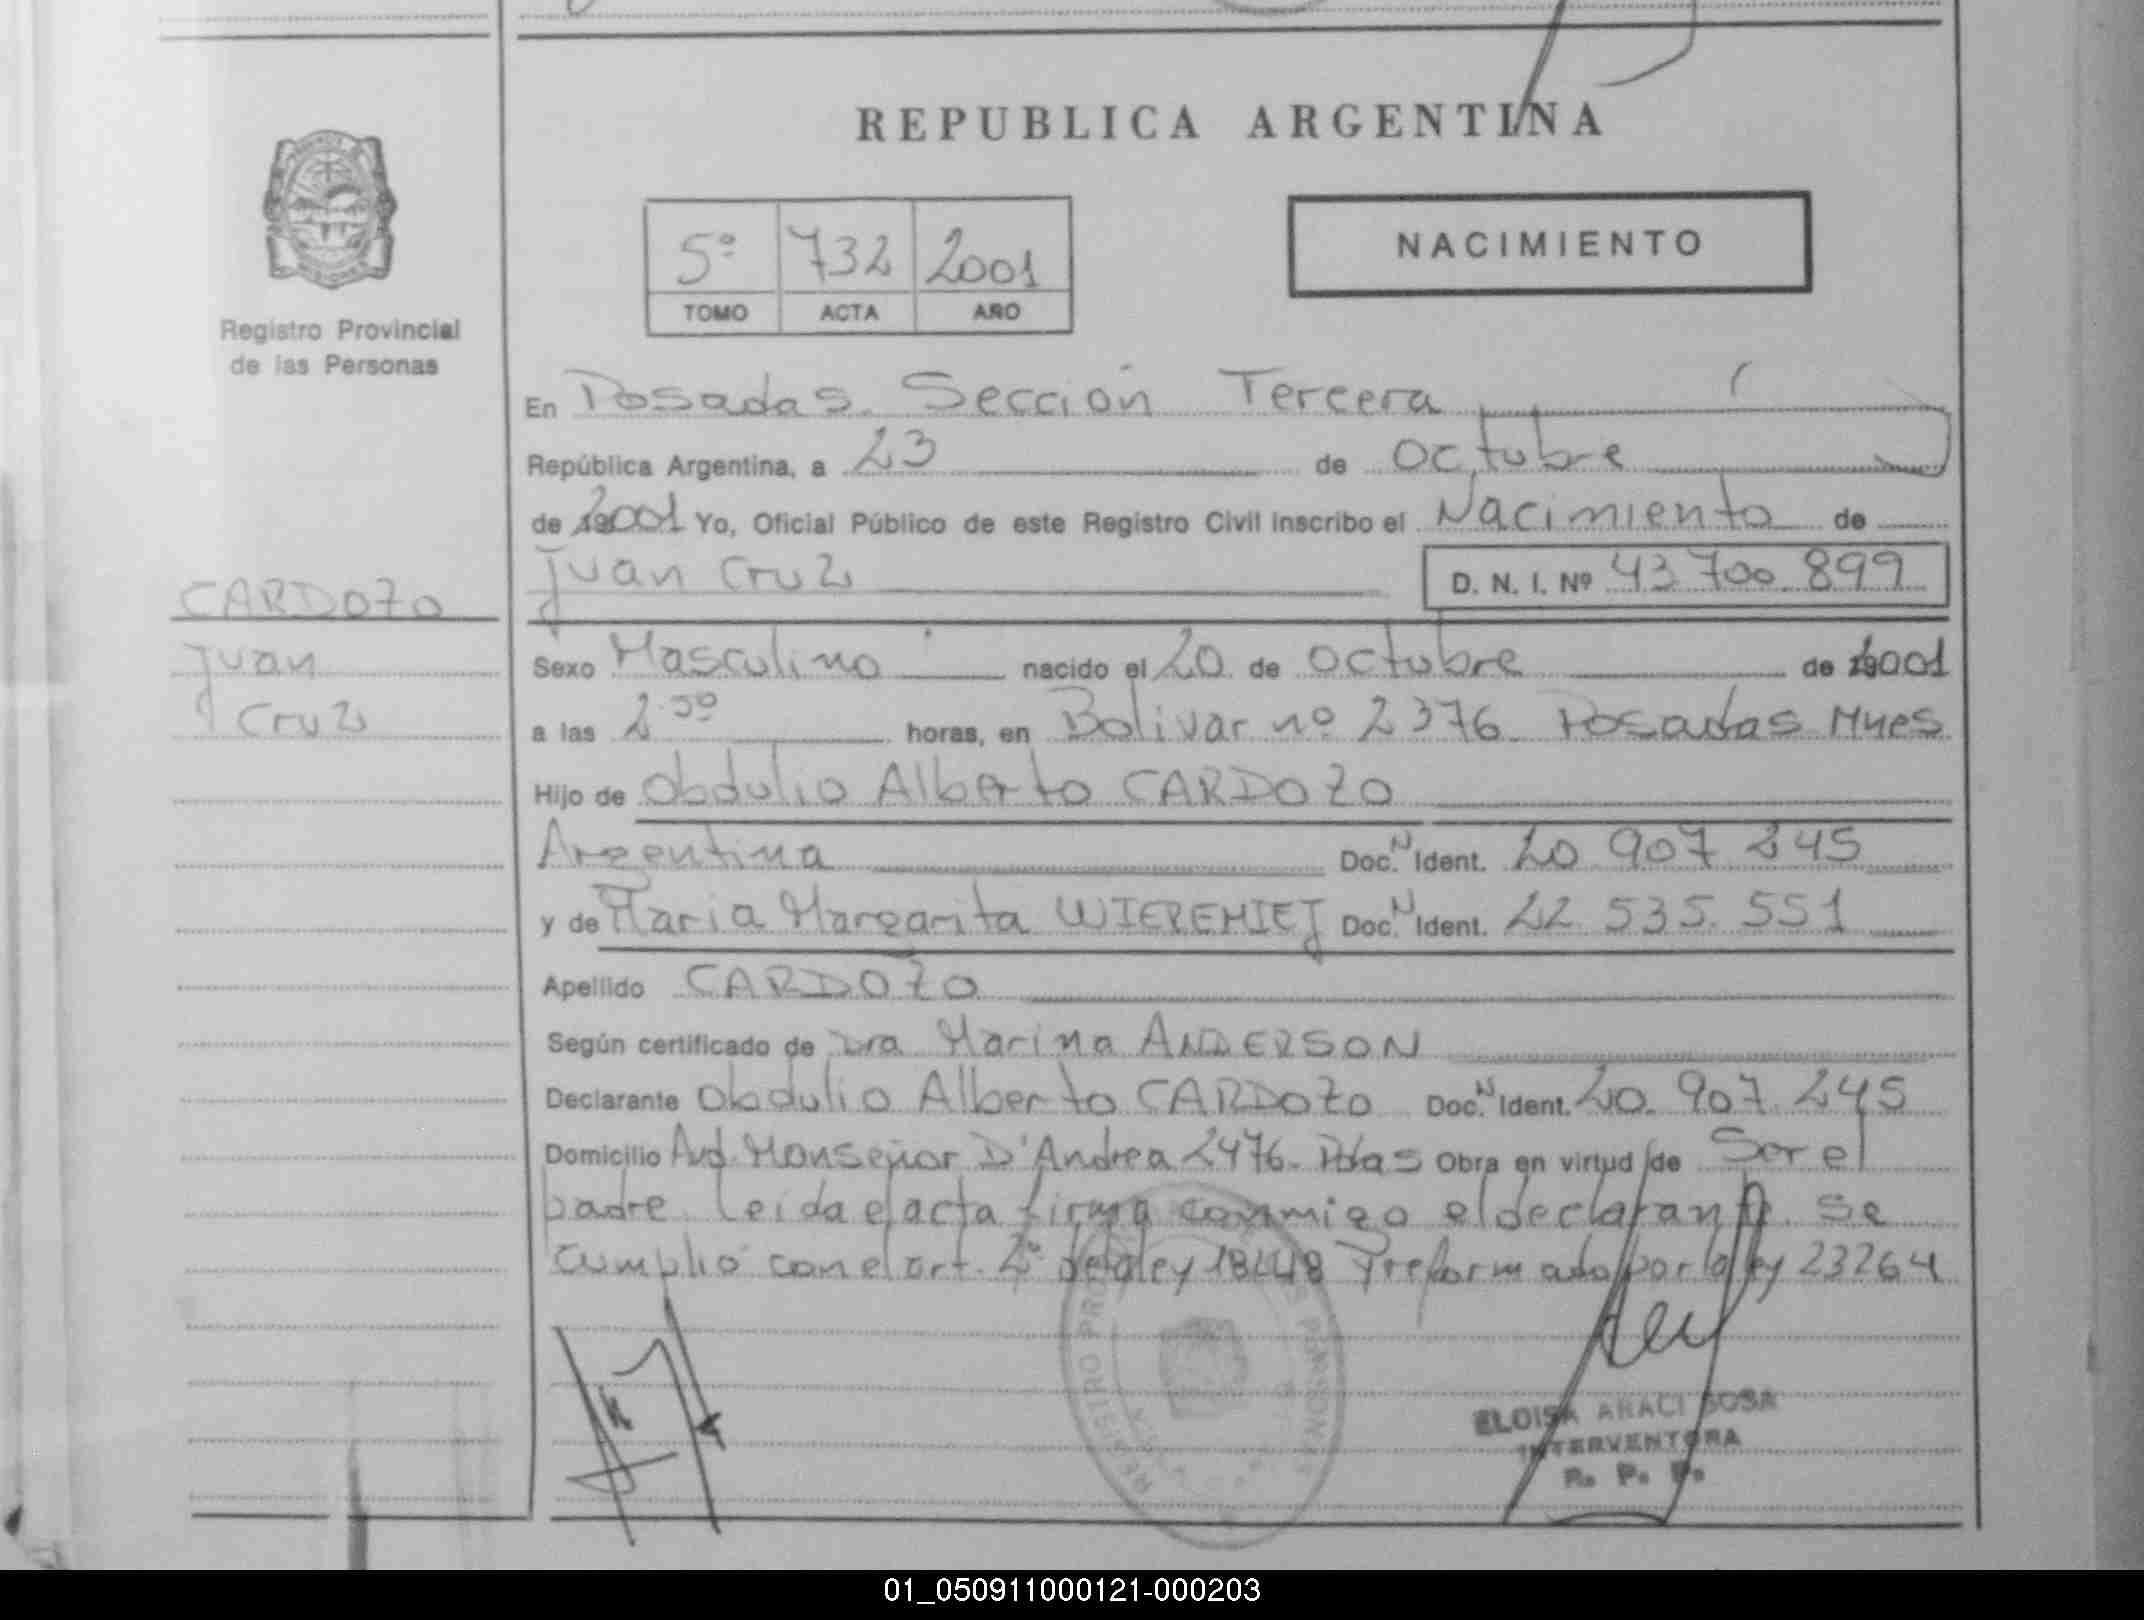 REPUBLICA ARGENTINA
NACIMIENTO
5º 732 2001
TOMO ACTA AÑO
Registro Provincial
de las Personas
En Posadas. Sección Tercera
República Argentina, a 23 de octubre
de 2001 Yo, Oficial Público de este Registro Civil inscribo el Nacimiento de
Juan Cruz D. N. I. Nº 43 700 899
CARDOZO
Juan
Cruz
Sexo Masculino nacido el 20 de octubre de 2001
a las 2.50 horas, en Bolivar nº 2376. Posadas Mnes
Hijo de Obdulio Alberto CARDOZO
Argentina Doc. N Ident. 20 907 245
y de Maria Margarita WIEREMIEJ Doc. N Ident. 22 535 551
Apellido CARDOZO
Según certificado de Dra Marina ANDERSON
Declarante Obdulio Alberto CARDOZO Doc. N Ident. 20. 907. 245
Domicilio Avd. Monseñor D'Andrea 2476. Pdas Obra en virtud de Ser el
padre. Leida el acta firma conmigo el declarante. Se
cumplió con el art. 2º de la ley 18448 y reformado por la ley 23264
REGISTRO PROVINCIAL DE LAS PERSONAS
ELOISA ARACI SOSA
INTERVENTORA
R. P. P.
01_050911000121-000203